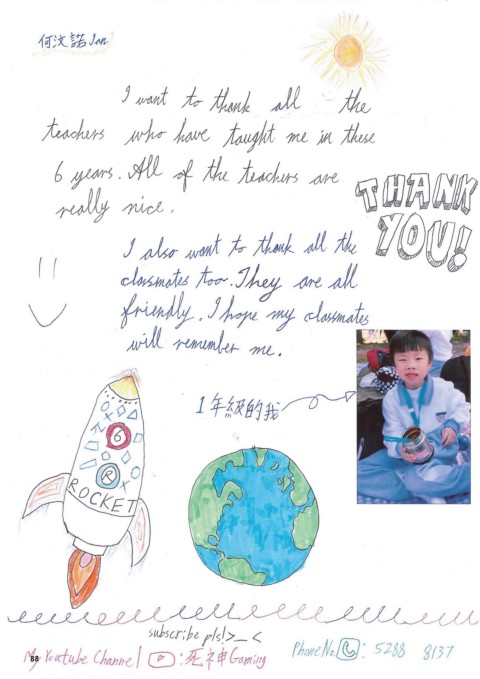 何汶諾 Jan
I want to thank all the
teachers who have taught me in these
6 years. All of the teachers are
really nice.
THANK
YOU!
I also want to thank all the
classmates too. They are all
friendly. I hope my classmates
will remember me.
1年級的我
6
R
ROCKET
subscribe pls!>_<
My Youtube Channel : 死神Gaming
Phone No. : 5288 8137
88